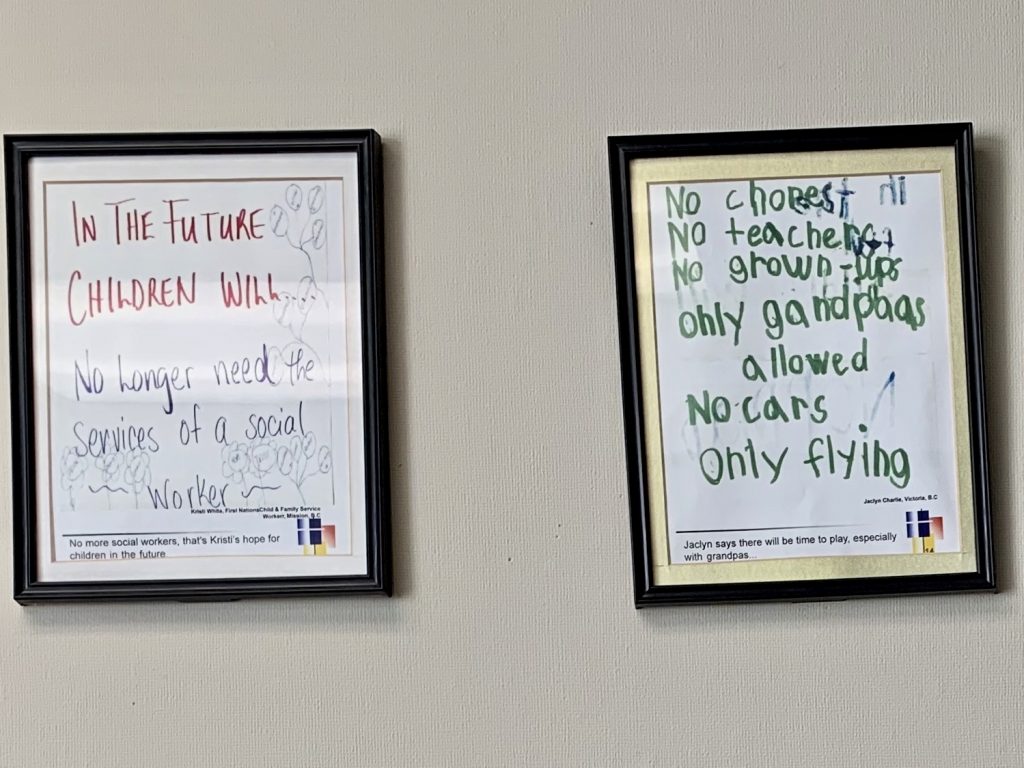 IN THE FUTURE
CHILDREN WILL....
No Longer need the
services of a social
~ Worker ~
Kristi White, First NationsChild & Family Service
Workerr, Mission, B.C
No more social workers, that's Kristi's hope for
children in the future...
No chores
No teachers
No grown-ups
only gandpaas
allowed
No cars
Only flying
Jaclyn Charlie, Victoria, B.C
Jaclyn says there will be time to play, especially
with grandpas...
14